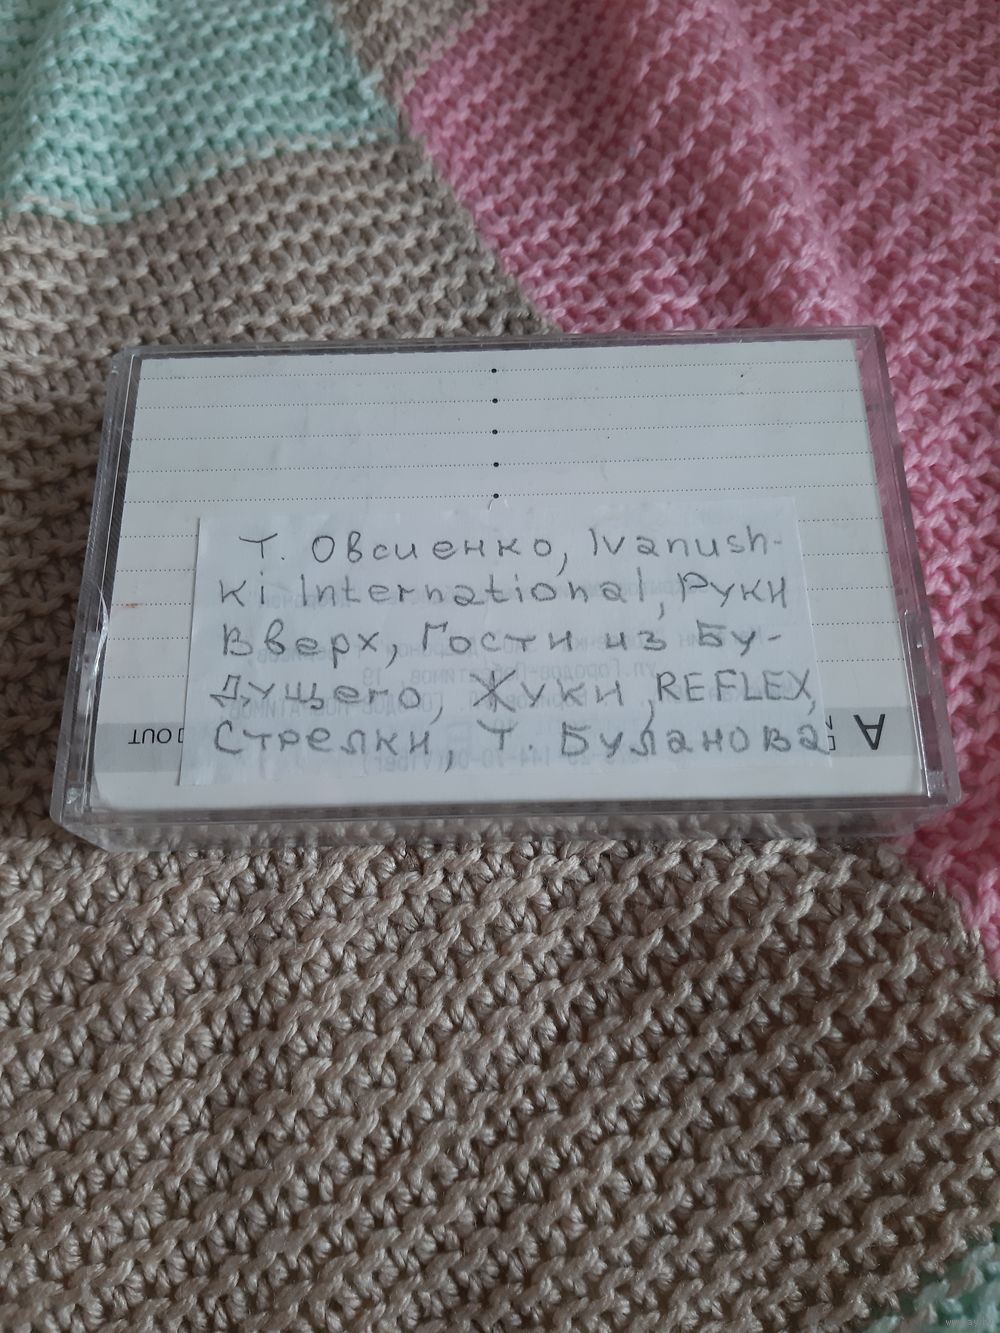 Т. Овсиенко, Ivanush-
ki International, Руки
Вверх, Гости из Бу-
дущего, Жуки, REFLEX,
Стрелки, Т. Буланова
A
OUT